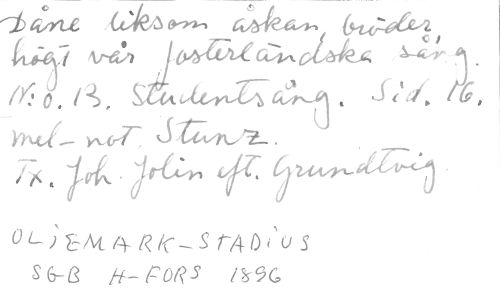 Dåne liksom åskan, bröder,
högt vår fosterländska sång.
N:o. 13. Studentsång. Sid. 16.
mel-not. Stunz.
Tx. Joh. Jolin eft. Grundtvig
OLJEMARK-STADIUS
SGB H-FORS 1896